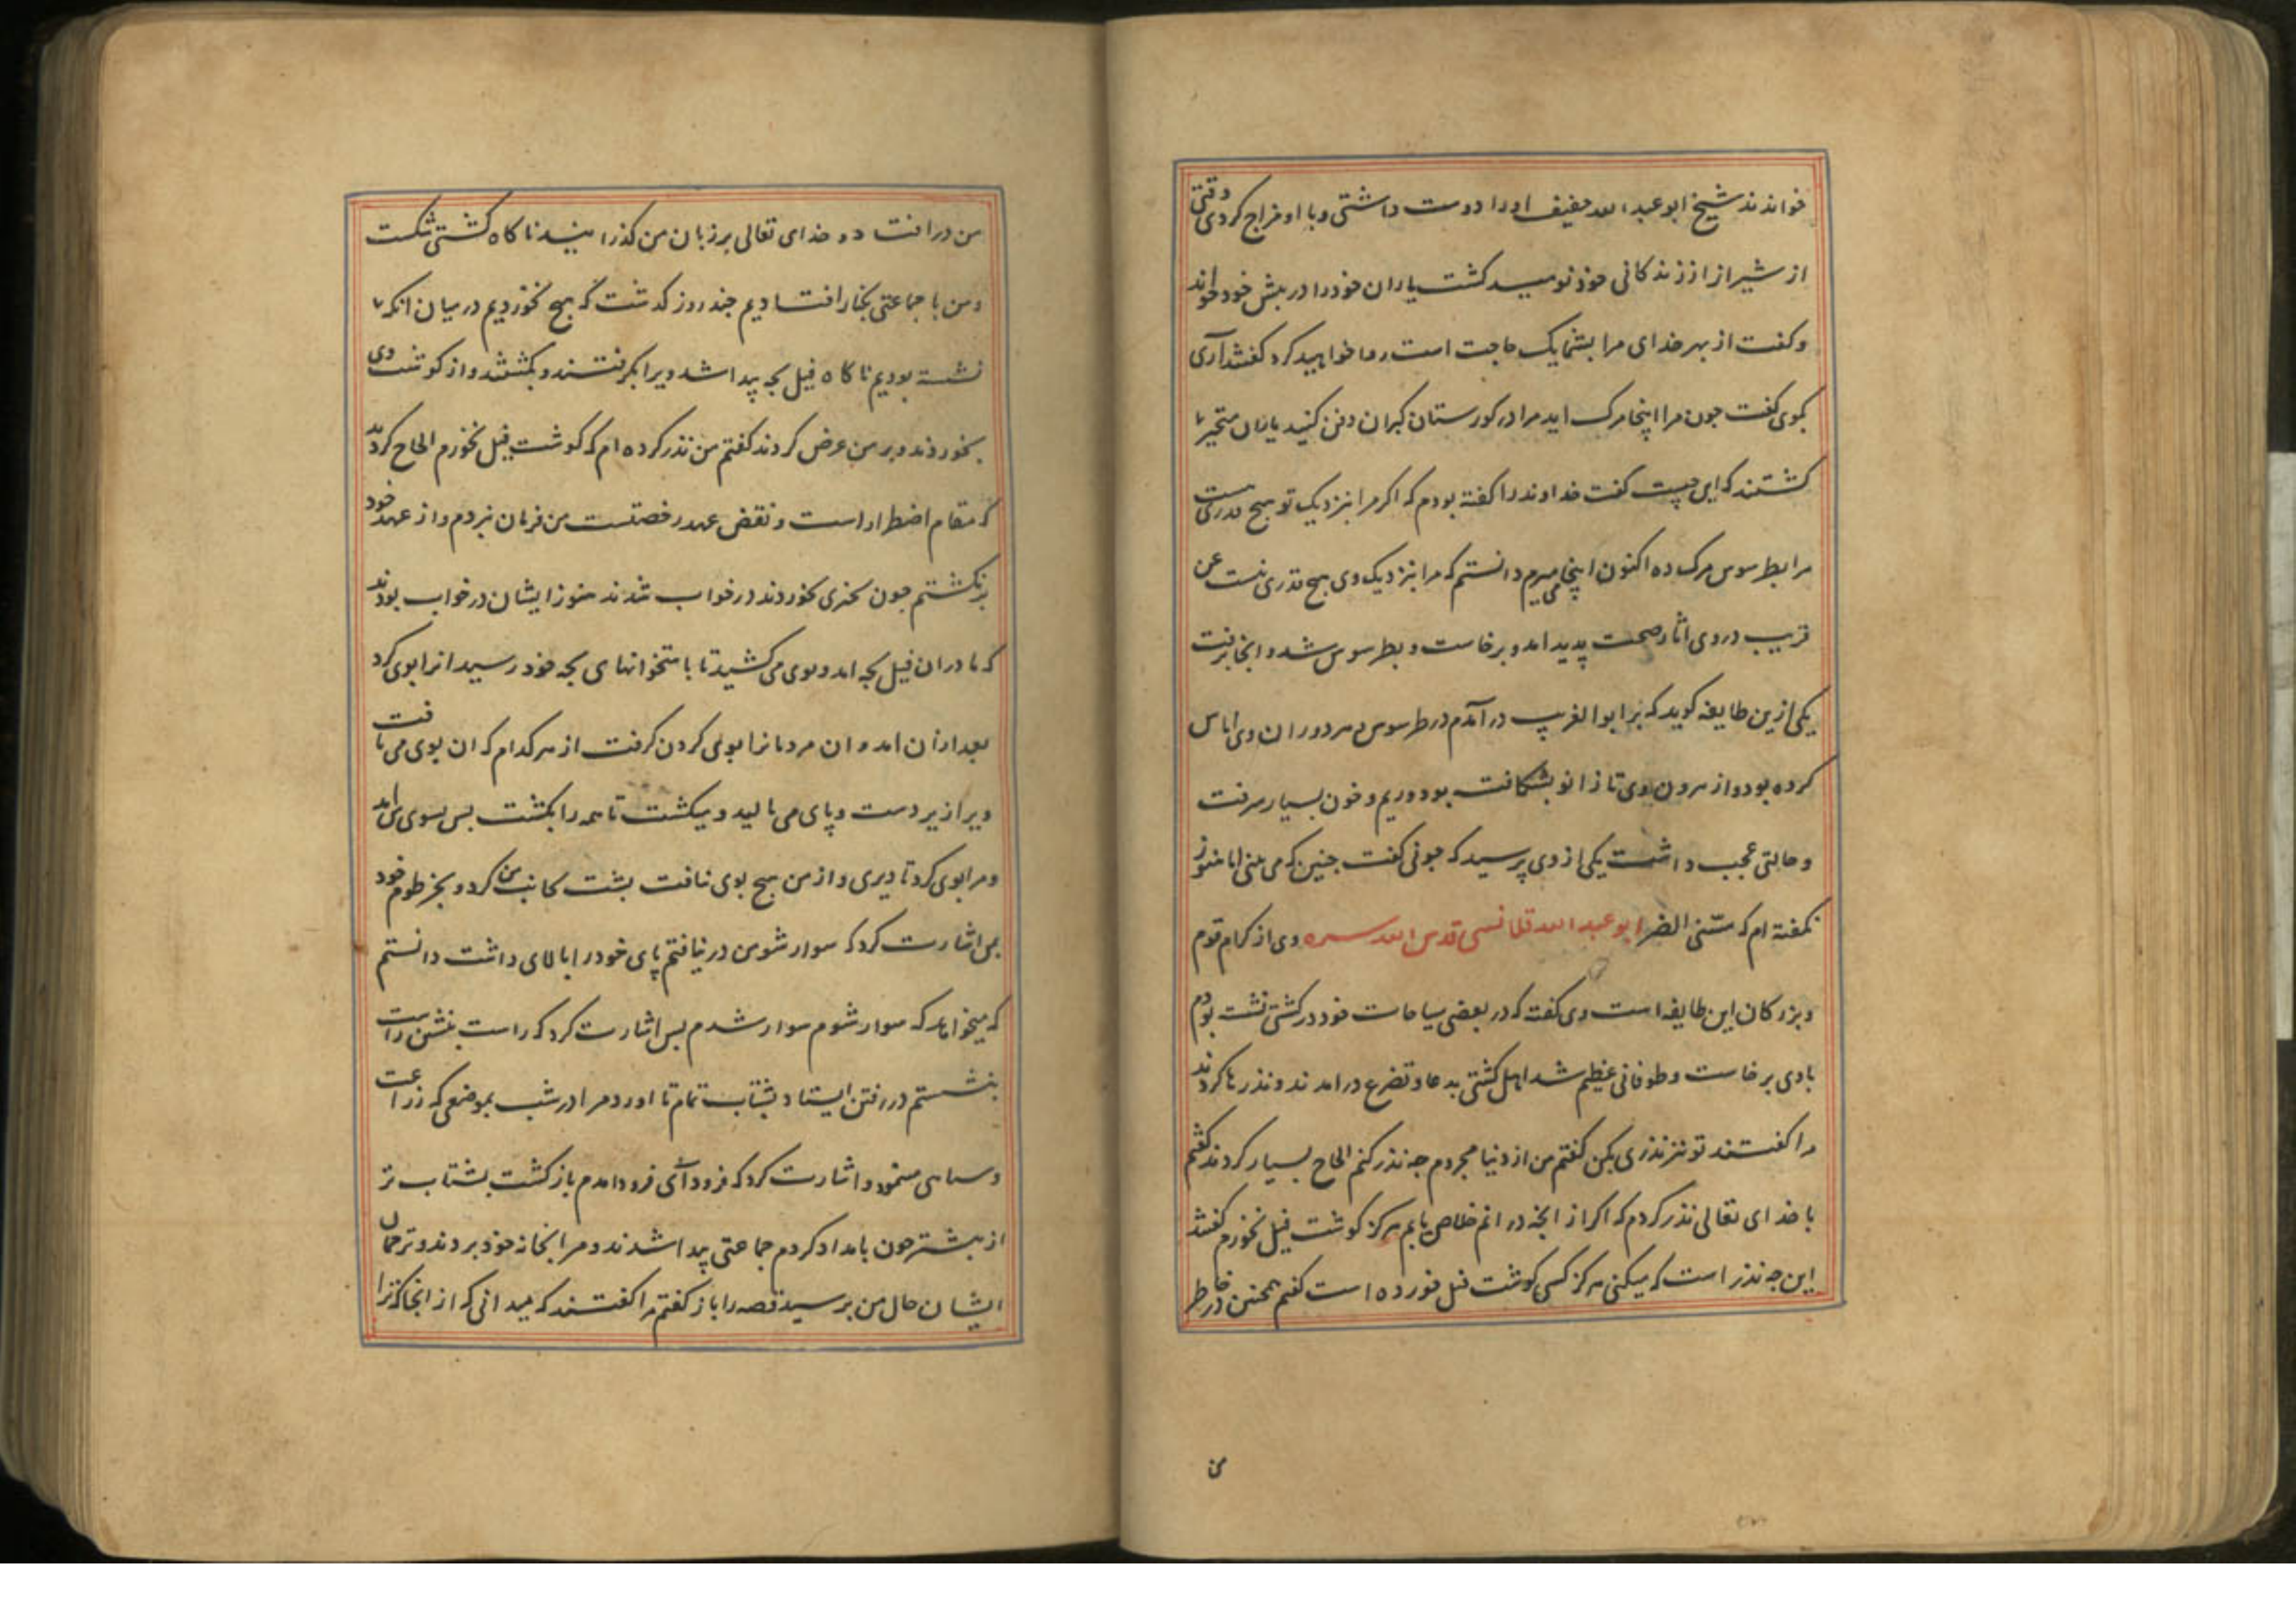 خواندند شیخ ابو عبد الله خفیف او را دوست داشتی و با او مزاح کردی وقتی
از شیراز از زندکانی خود نومید کشت یاران خود را در پیش خود خواند
و کفت از بهر خدای مرا بشما یک حاجت است روا خواهید کرد کفتند آری
بکوی کفت جون مرا اینجا مرک اید مرا در کورستان کبران دفن کنید یاران متحیر
کشتند که این چیست کفت خداوند را کفته بودم که اکر مرا بنزدیک تو هیج قدری هست
مرا بطرسوس مرک ده اکنون اینجا میمیرم دانستم که مرا بنزدیک وی هیج قدری نیست عن
قریب در وی اثار صحت پدید امد و برخاست و بطرسوس شد و انجا برفت
یکی ازین طایفه کوید که بر ابو الغریب در آمدم در طرسوس هر دو ران وی اماس
کرده بود و از سرون وی تا زانو بشکافت بود و ریم و خون بسیار میرفت
و حالتی عجب داشت یکی از وی پرسید که جونی کفت جنین که می بینی اما هنوز
نکفته ام که مسّنی الضر ابو عبد الله قلانسی قدس الله سره وی از کرام قوم
و بزرکان این طایفه است وی کفته که در بعضی سیاحات خود در کشتی نشست بودم
بادی برخاست و طوفانی عظیم شد اهل کشتی بدعا و تضرع در امدند و نذرها کردند
مرا کفتند تو نیز نذری بکن کفتم من از دنیا مجردم جه نذر کنم الحاح بسیار کردند کفتم
با خدای تعالی نذر کردم که اکر از انجه در انم خلاص یابم هرکز کوشت فیل نخورم کفتند
این جه نذر است که میکنی هرکز کسی کوشت فیل خورده است کفتم همجنین در خاطر
من
من در افتاد و خدای تعالی بر زبان من کذرانید ناکاه کشتی شکست
و من با جماعتی بکنار افتادیم جند روز کدشت که هیج نخوردیم در میان انکه ما
نشسته بودیم ناکاه فیل بجه پیدا شد ویرا بکرفتند و بکشتند و از کوشت وی
بخوردند و بر من عرض کردند کفتم من نذر کرده ام که کوشت فیل نخورم الحاح کردند
که مقام اضطرار است و نقض عهد رخصتست من فرمان نبردم و از عهد خود
برنکشتم جون بخوردند در خواب شدند هنوز ایشان در خواب بودند
که مادر ان فیل بجه امد و بوی می کشید تا باستخوانهای بجه خود رسید انرا بوی کرد
بعد ازان امد و ان مردمانرا بوی کردن کرفت از هر کدام که ان بوی می یافت
ویرا زیر دست و پای می مالید و میکشت تا همه را بکشت بس بسوی من امد
و مرا بوی کرد تا دیری و از من هیج بوی نیافت بشت بجانب من کرد و بخرطوم خود
بمن اشارت کرد که سوار شو من در نیافتم پای خود را بالای داشت دانستم
که میخواهد که سوار شوم سوار شدم بس اشارت کرد که راست بنشین راست
بنشستم در رفتن ایستاد بشتاب تمام تا اورد مرا در شب بموضعی که زراعت
و سیاهی مینمود و اشارت کرد که فرود آی فرود امدم باز کشت بشتاب تر
از بیشتر جون بامداد کردم جماعتی پیدا شدند و مرا بخانه خود بردند و ترجمان
ایشان حال من پرسید قصه را باز کفتم مرا کفتند که میدانی که از انجا که ترا